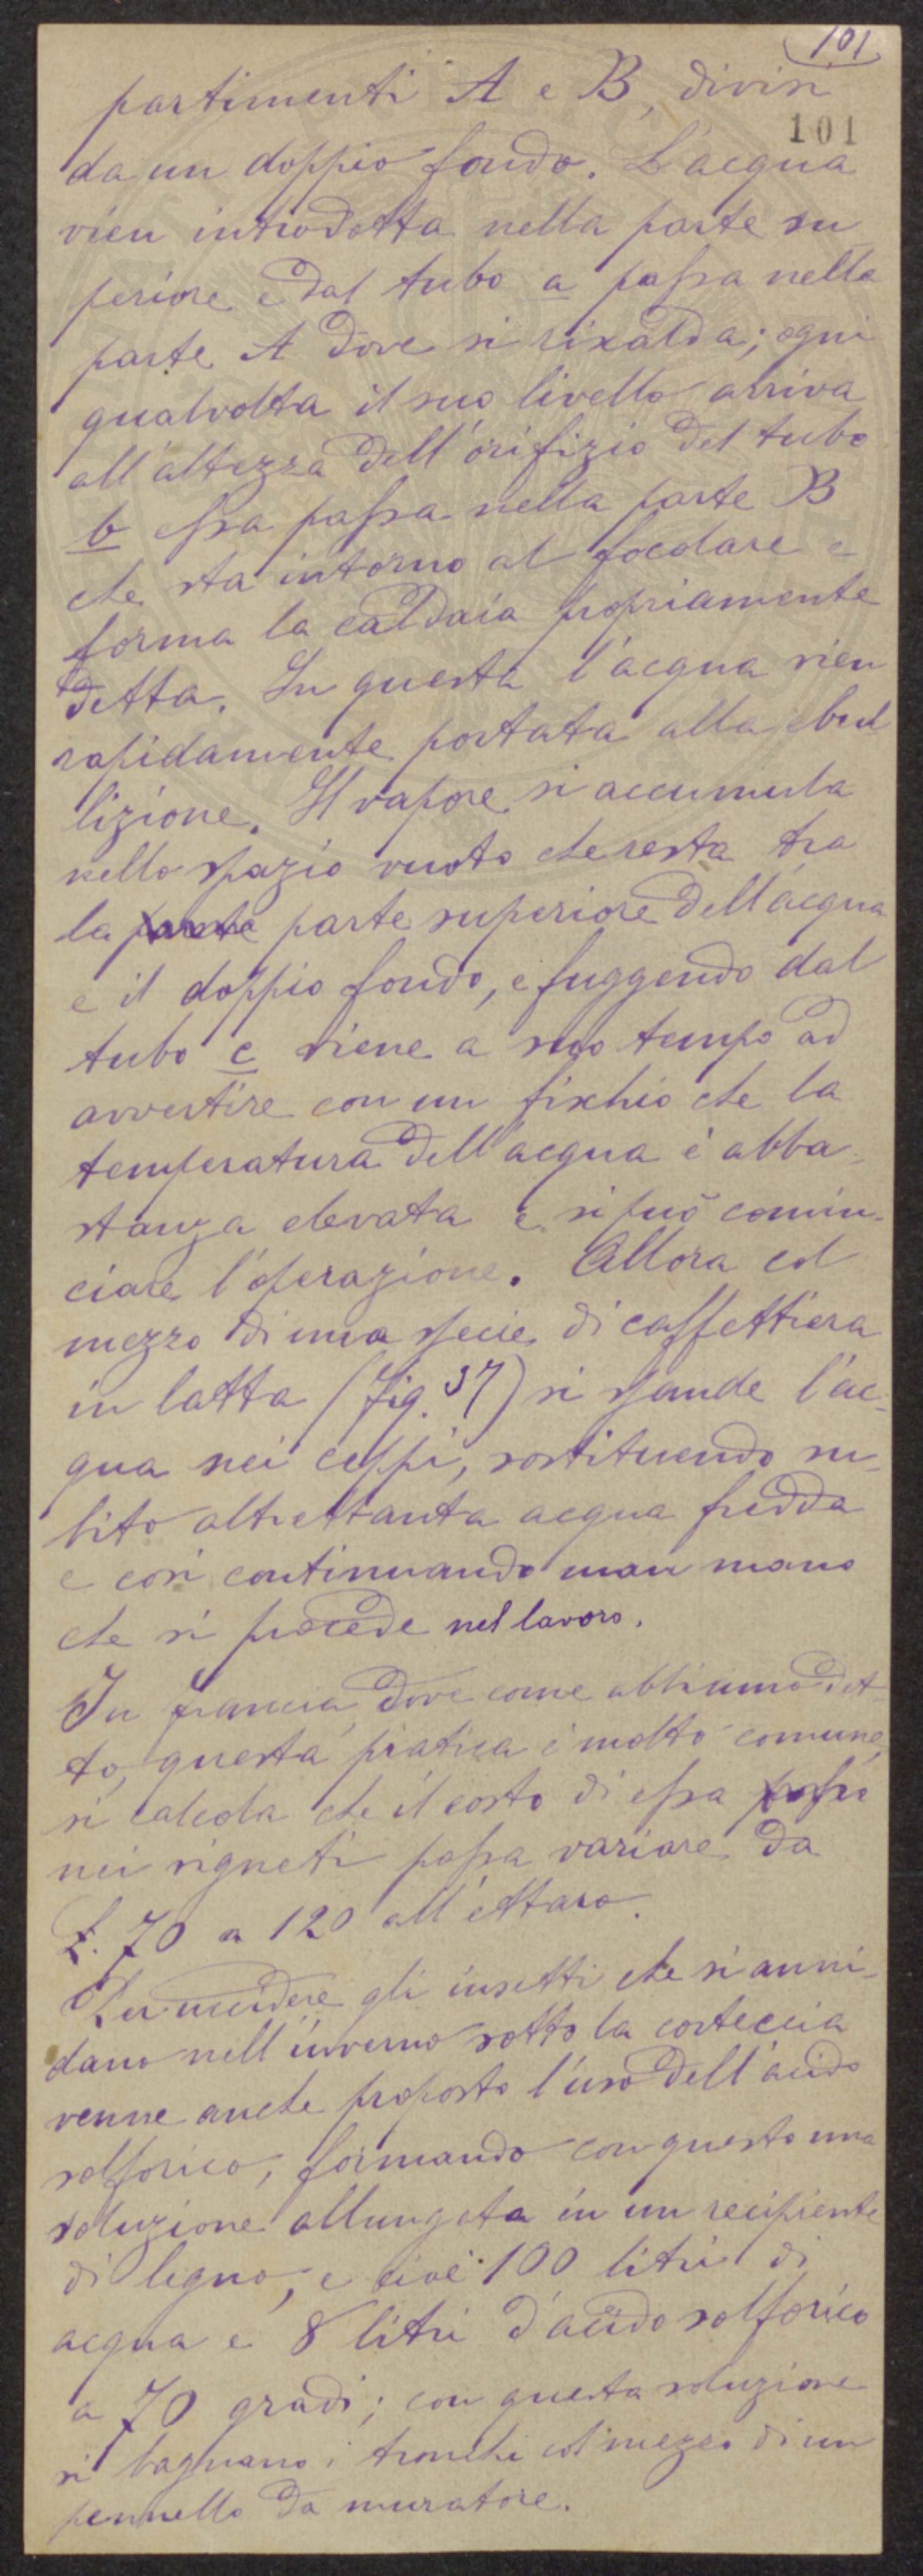 101
partimenti A e B, divisi
101
da un doppio fondo. L'acqua
vien introdotta nella parte su
periore e dal tubo a passa nella
parte A dove si riscalda; ogni
qualvolta il suo livello arriva
all'altezza dell'orifizio del tubo
b essa passa nella parte B
che sta intorno al focolare e
forma la caldaia propriamente
detta. In questa l'acqua vien
rapidamente portata alla ebul
lizione. Il vapore si accumula
nello spazio vuoto che resta tra
la parte superiore dell'acqua
e il doppio fondo, e fuggendo dal
tubo c viene a suo tempo ad
avvertire con un fischio che la
temperatura dell'acqua è abba-
stanza elevata e si può comin-
ciare l'operazione. Allora col
mezzo di una specie di caffettiera
in latta (fig. 37) si spande l'ac-
qua nei ceppi, sostituendo su-
bito altrettanta acqua fredda
e così continuando man mano
che si procede nel lavoro.
In francia dove come abbiamo det-
to, questa pratica è molto comune,
si calcola che il costo di essa
nei vigneti possa variare da
L. 70 a 120 all'ettaro.
Per uccidere gli insetti che si anni-
dano nell'inverno sotto la corteccia
venne anche proposto l'uso dell'acido
solforico, formando con questo una
soluzione allungata in un recipiente
di legno, e cioè 100 litri di
acqua e 8 litri d'acido solforico
a 70 gradi; con questa soluzione
si bagnano i tronchi col mezzo di un
pennello da muratore.